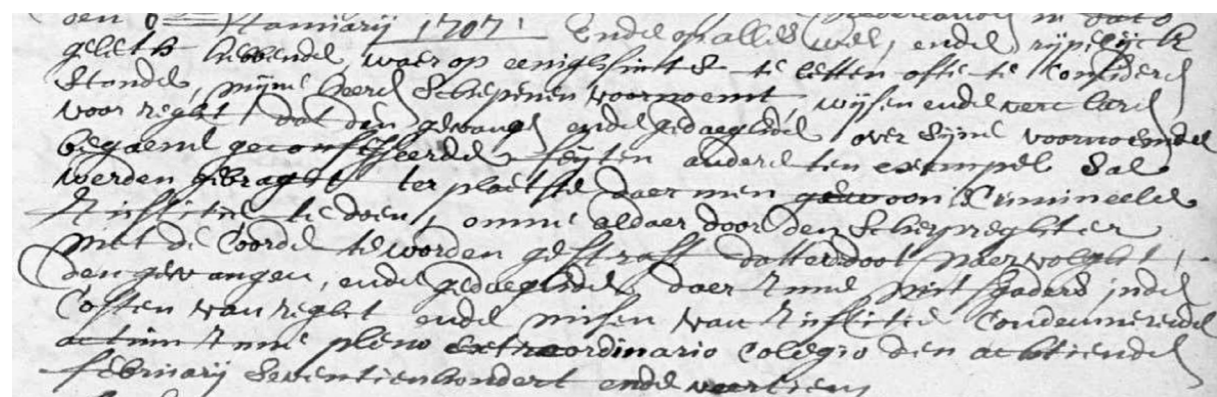 den 6en Januarij 1707: Ende op alles wel, ende rijpelijck
geleth hebbende, waer op eenighsints te letten ofte te Considere
stonde, mijne heere Schepenen voornoemt, wijsen ende verclare
voor reght, dat den gevange ende gedaeghde over sijne voornoemde
begaene geconfesseerde feijten andere ten exempel sal
werden gebraght ter plaetse daer men gewoon is Crimineele
Justitie te doen, omme aldaer door den Scherpreghter
met de Coorde te worden gestraft datter doot naervolght,
den gevangen, ende gedaeghde daer inne mitsgaders inde
Costen van reght ende misen van Justitie Condemnerende
actum inne pleno extraordinario Colegio den achtiende
februarij seventienhondert ende veertien